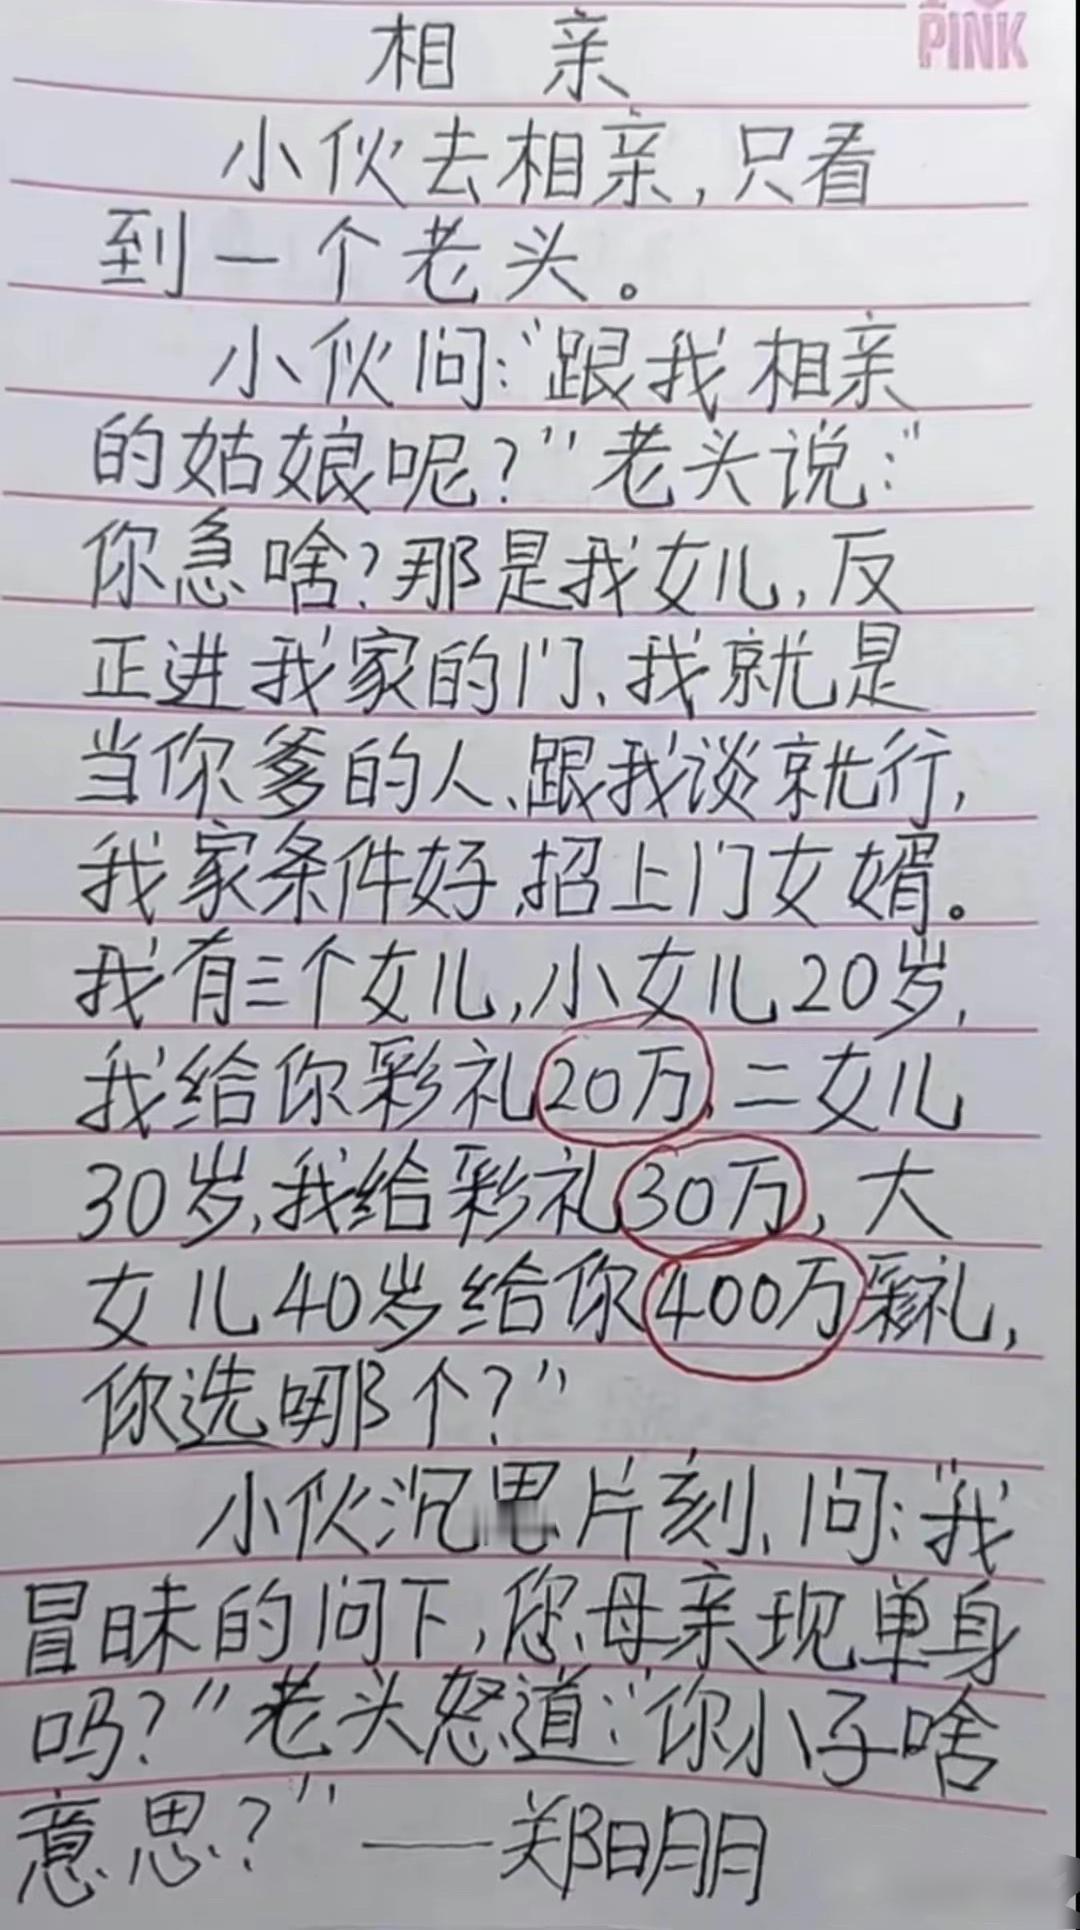 PINK
相 亲
小伙去相亲,只看
到一个老头。
小伙问:“跟我相亲
的姑娘呢?”老头说:“
你急啥?那是我女儿,反
正进我家的门、我就是
当你爹的人、跟我谈就行,
我家条件好,招上门女婿。
我有三个女儿,小女儿20岁,
我给你彩礼20万、二女儿
30岁,我给彩礼30万,大
女儿40岁给你400万彩礼,
你选哪个?”
小伙沉思片刻、问:“我
冒昧的问下,您母亲现单身
吗?”老头怒道:“你小子啥
意思?”——郑阳朋